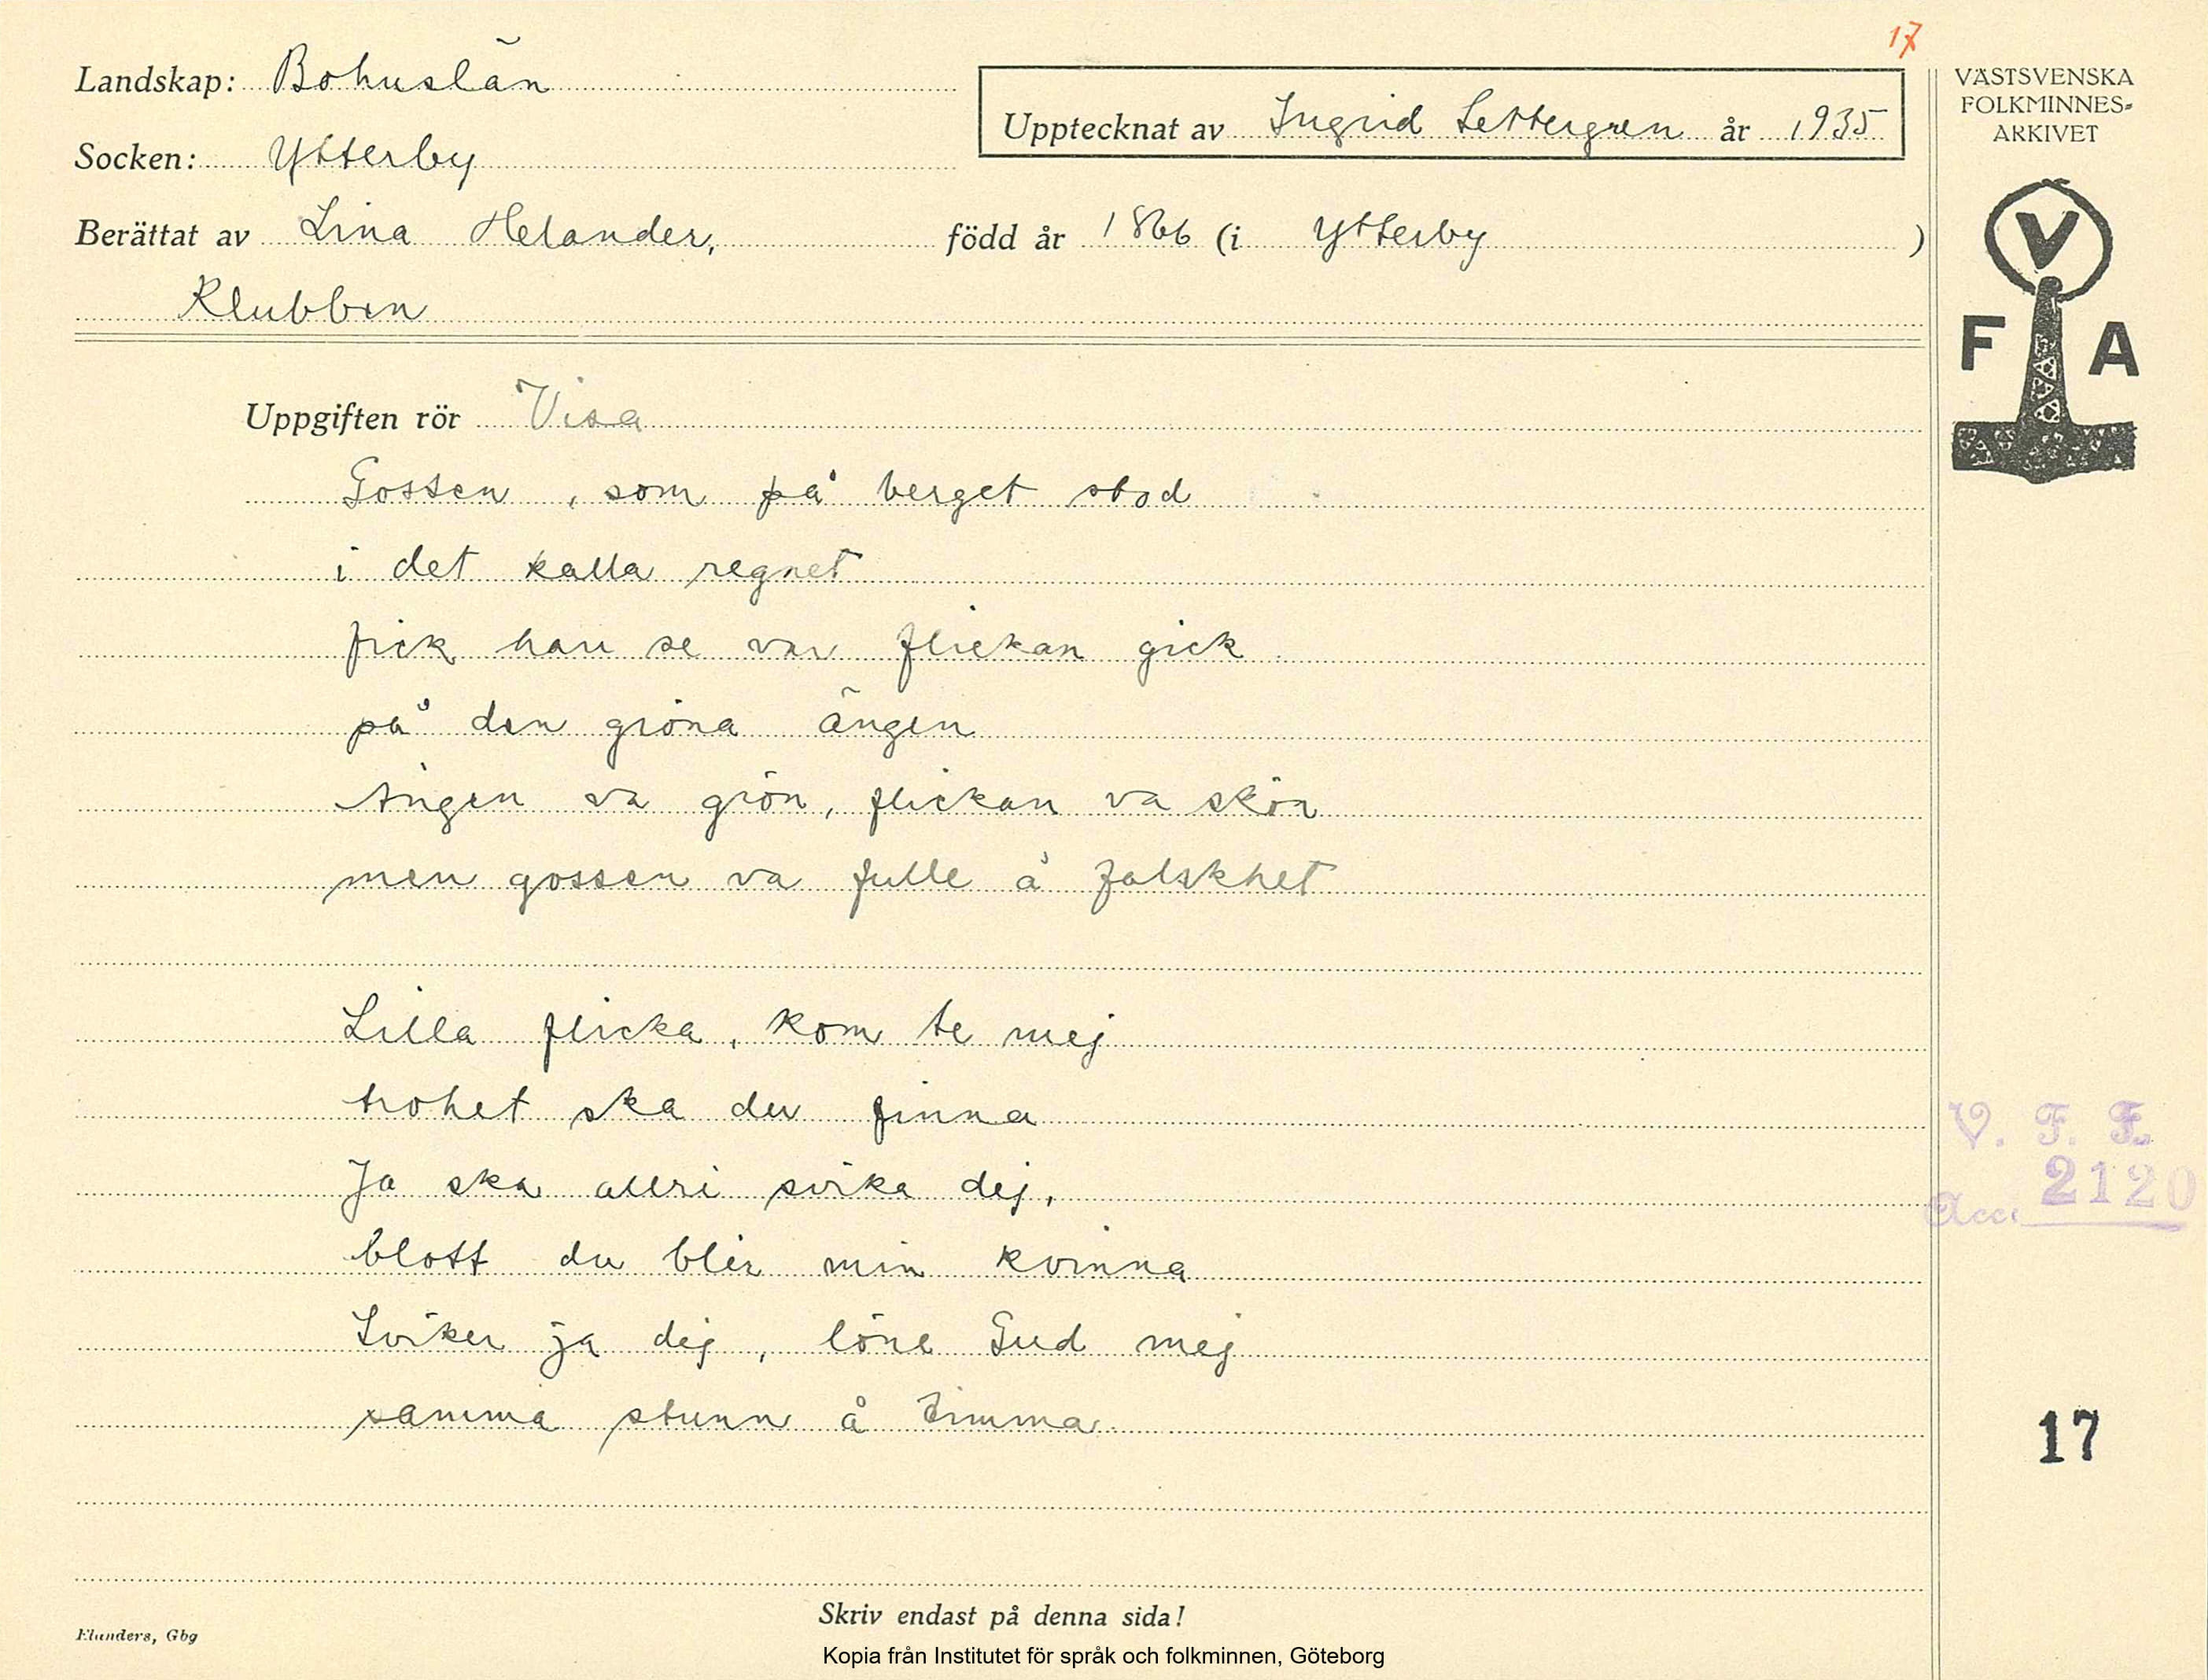 17
Landskap: Bohuslän
Upptecknat av Ingrid Settergren år 1935
Socken: Ytterby
Berättat av Lina Helander, född år 1866 (i Ytterby )
Klubben
VÄSTSVENSKA
FOLKMINNES-
ARKIVET
V
F A
Uppgiften rör Visa
Gossen, som på berget stod
i det kalla regnet
fick han se var flickan gick
på den gröna ängen
Ängen va grön, flickan va skön
men gossen va fulle å falskhet
Lilla flicka, kom te mej
trohet ska du finna
Ja ska allri svika dej,
blott du blir min kvinna
Sviker ja dej, löne Gud mej
samma stunn å timma
V. F. F.
Acc. 2120
17
Skriv endast på denna sida!
Elanders, Gbg
Kopia från Institutet för språk och folkminnen, Göteborg